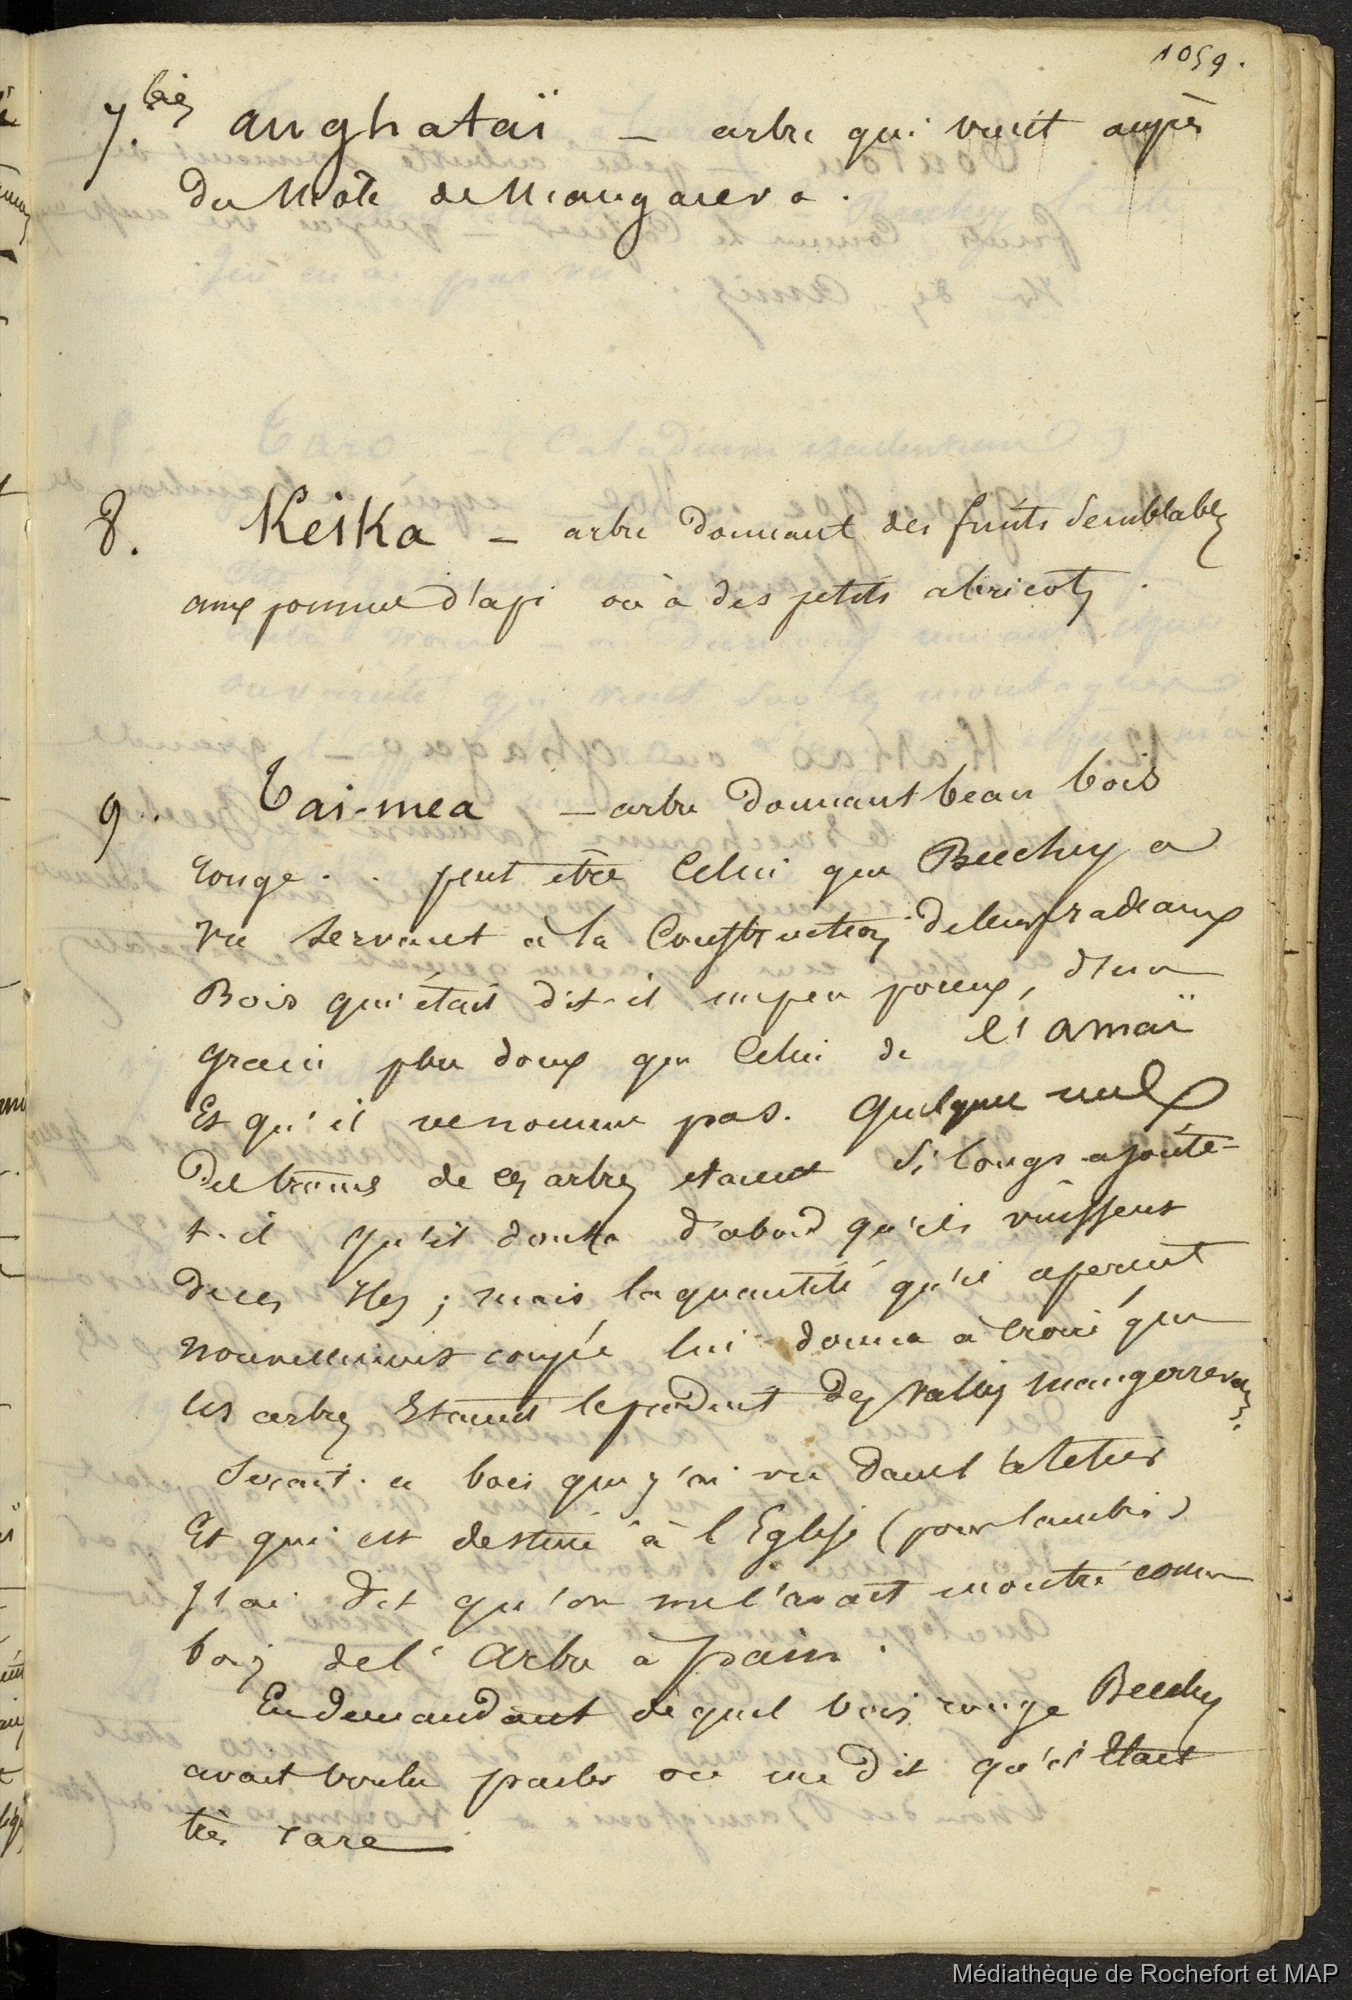 1059.
7.bis anghataï — arbre qui vient auprès
du Mote de Mangareva.
8. Keika — arbre donnant des fruits semblables
aux pomme d'api ou à des petits abricots.
9. Tai-mea — arbre donnant beau bois
rouge . . peut être celui que Beechey a
vu servant à la construction de leurs radeaux
Bois qui était dit-il un peu poreux, d'un
grain plus doux que celui de l'amaï
Et qu'il ne nomme pas. Quelques uns
Des troncs de ces arbres etaient si longs ajoute-
t-il qu'il douta d'abord qu'ils vinssent
de ces Iles ; mais la quantité qu'il aperçut
nouvellement coupée lui donna à croire que
les arbres Etaient le produit des vallées mangareviennes.
Serait-ce bois que j'ai vu dans l'atelier
Et qui est destiné à l'Eglise (pour lambris)
J'ai dit qu'on me l'avait montré comme
bois de l'Arbre à pain.
En demandant de quel bois rouge Beechey
avait voulu parler on me dit qu'il Etait
très rare
Médiathèque de Rochefort et MAP